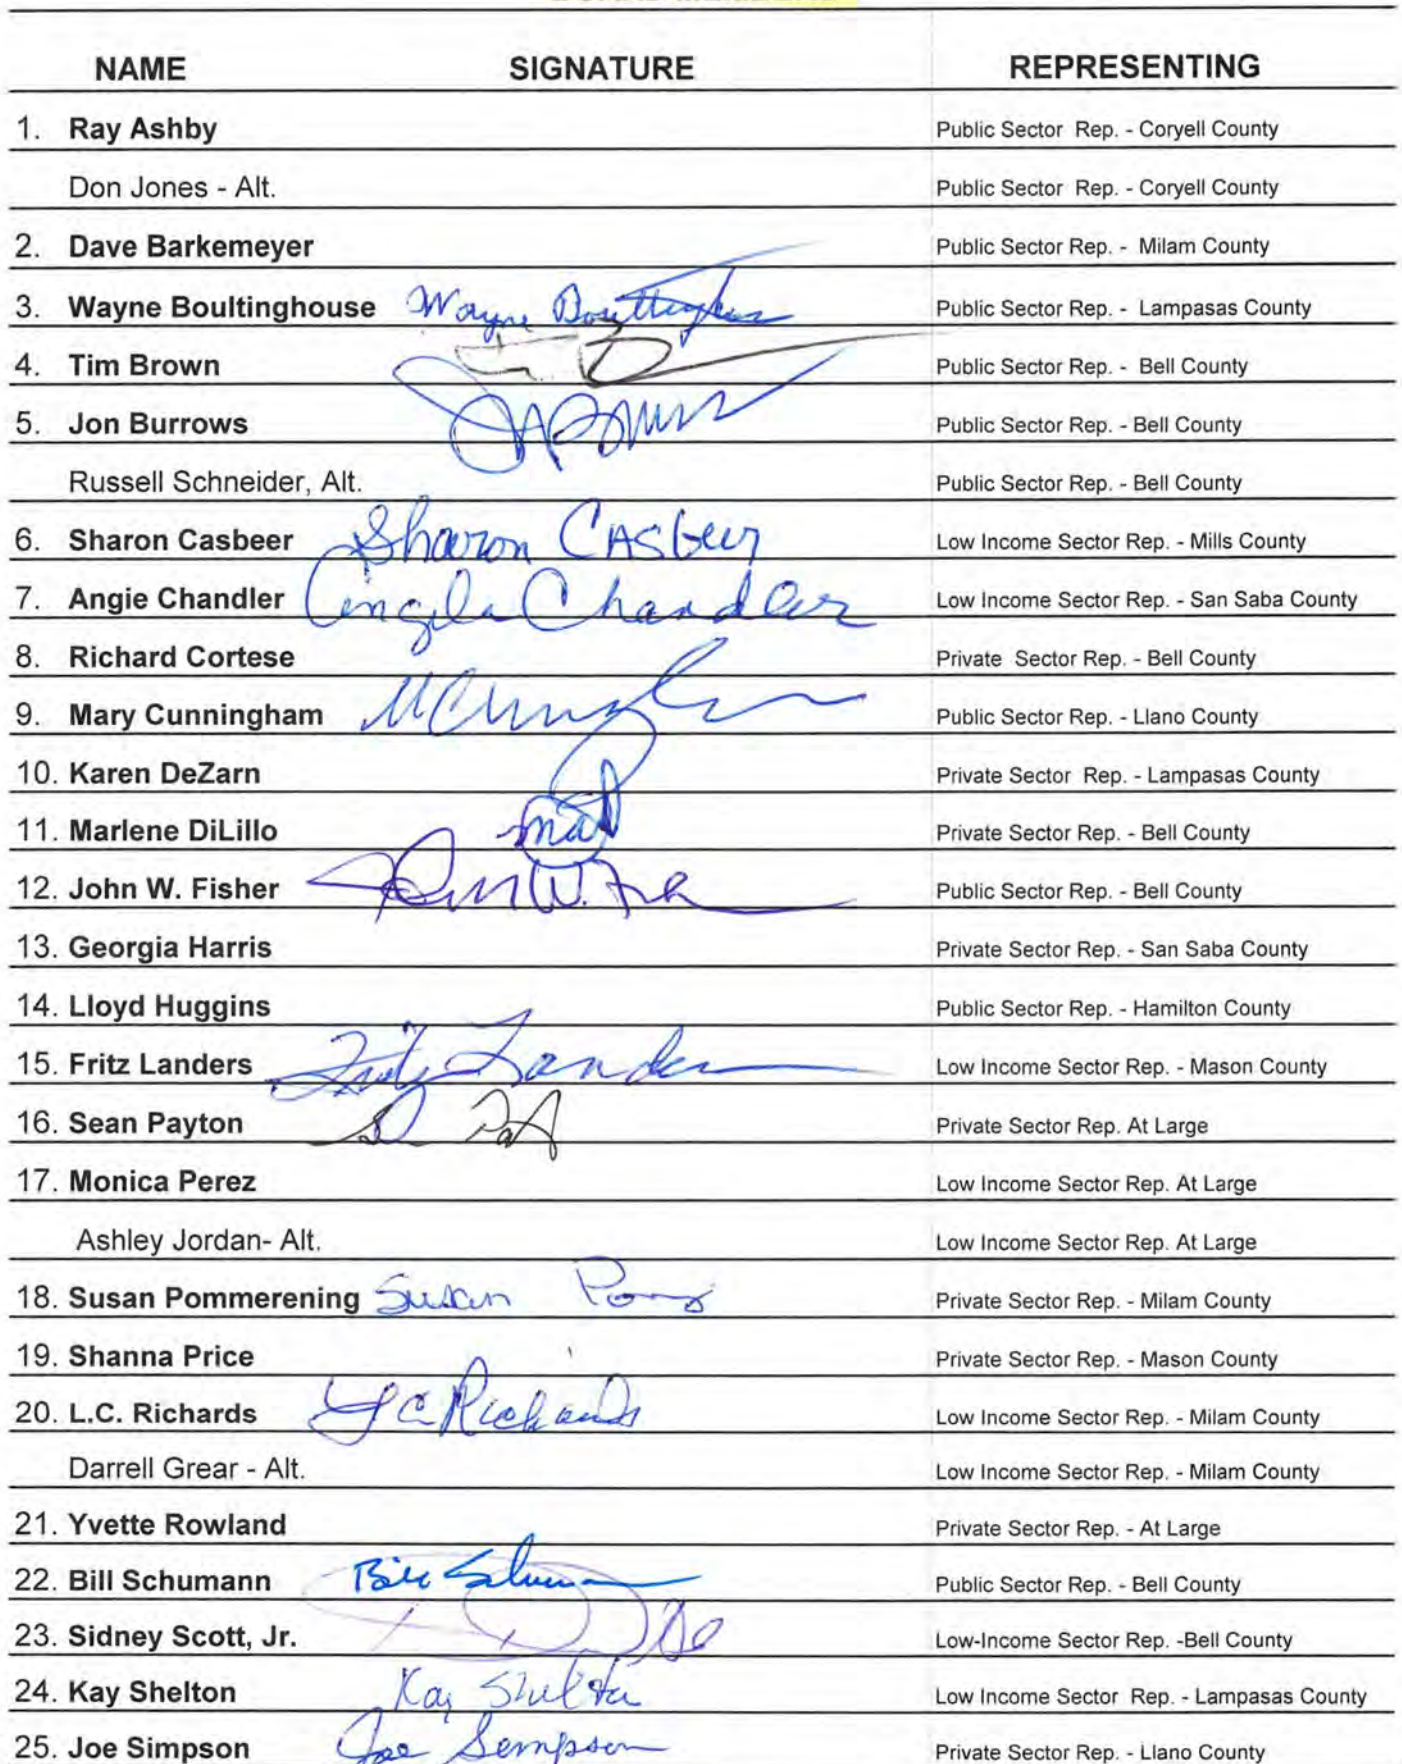 NAME SIGNATURE REPRESENTING
1. Ray Ashby Public Sector Rep. - Coryell County
Don Jones - Alt. Public Sector Rep. - Coryell County
2. Dave Barkemeyer Public Sector Rep. - Milam County
3. Wayne Boultinghouse Wayne Public Sector Rep. - Lampasas County
4. Tim Brown Public Sector Rep. - Bell County
5. Jon Burrows Public Sector Rep. - Bell County
Russell Schneider, Alt. Public Sector Rep. - Bell County
6. Sharon Casbeer Sharon Casbeer Low Income Sector Rep. - Mills County
7. Angie Chandler Angela Chandler Low Income Sector Rep. - San Saba County
8. Richard Cortese Private Sector Rep. - Bell County
9. Mary Cunningham Public Sector Rep. - Llano County
10. Karen DeZarn Private Sector Rep. - Lampasas County
11. Marlene DiLillo Private Sector Rep. - Bell County
12. John W. Fisher John W. Public Sector Rep. - Bell County
13. Georgia Harris Private Sector Rep. - San Saba County
14. Lloyd Huggins Public Sector Rep. - Hamilton County
15. Fritz Landers Fritz Landers Low Income Sector Rep. - Mason County
16. Sean Payton Private Sector Rep. At Large
17. Monica Perez Low Income Sector Rep. At Large
Ashley Jordan- Alt. Low Income Sector Rep. At Large
18. Susan Pommerening Susan Private Sector Rep. - Milam County
19. Shanna Price Private Sector Rep. - Mason County
20. L.C. Richards LC Richards Low Income Sector Rep. - Milam County
Darrell Grear - Alt. Low Income Sector Rep. - Milam County
21. Yvette Rowland Private Sector Rep. - At Large
22. Bill Schumann Bill Public Sector Rep. - Bell County
23. Sidney Scott, Jr. Low-Income Sector Rep. -Bell County
24. Kay Shelton Kay Shelton Low Income Sector Rep. - Lampasas County
25. Joe Simpson Joe Simpson Private Sector Rep. - Llano County